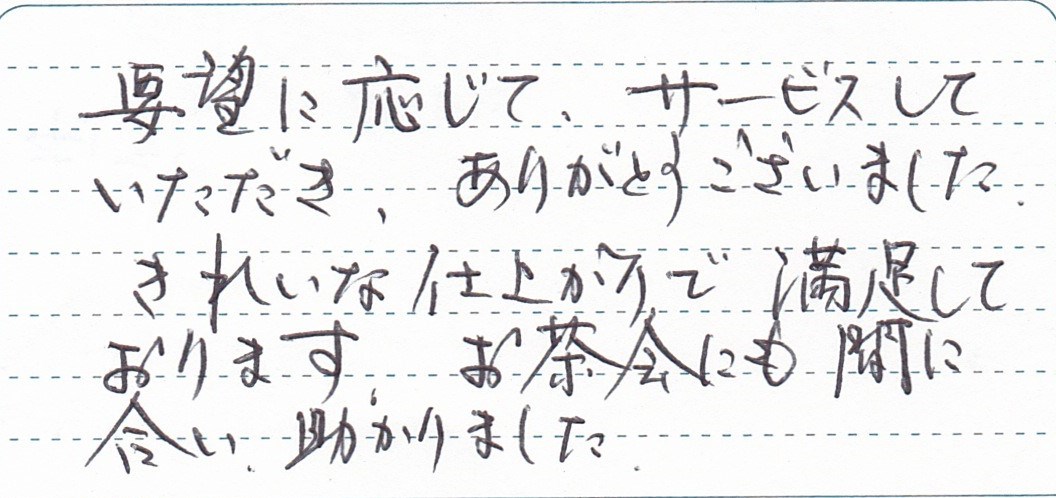 要望に応じて、サービスして
いただき、ありがとうございました。
きれいな仕上がりで満足して
おります。お茶会にも間に
合い、助かりました。